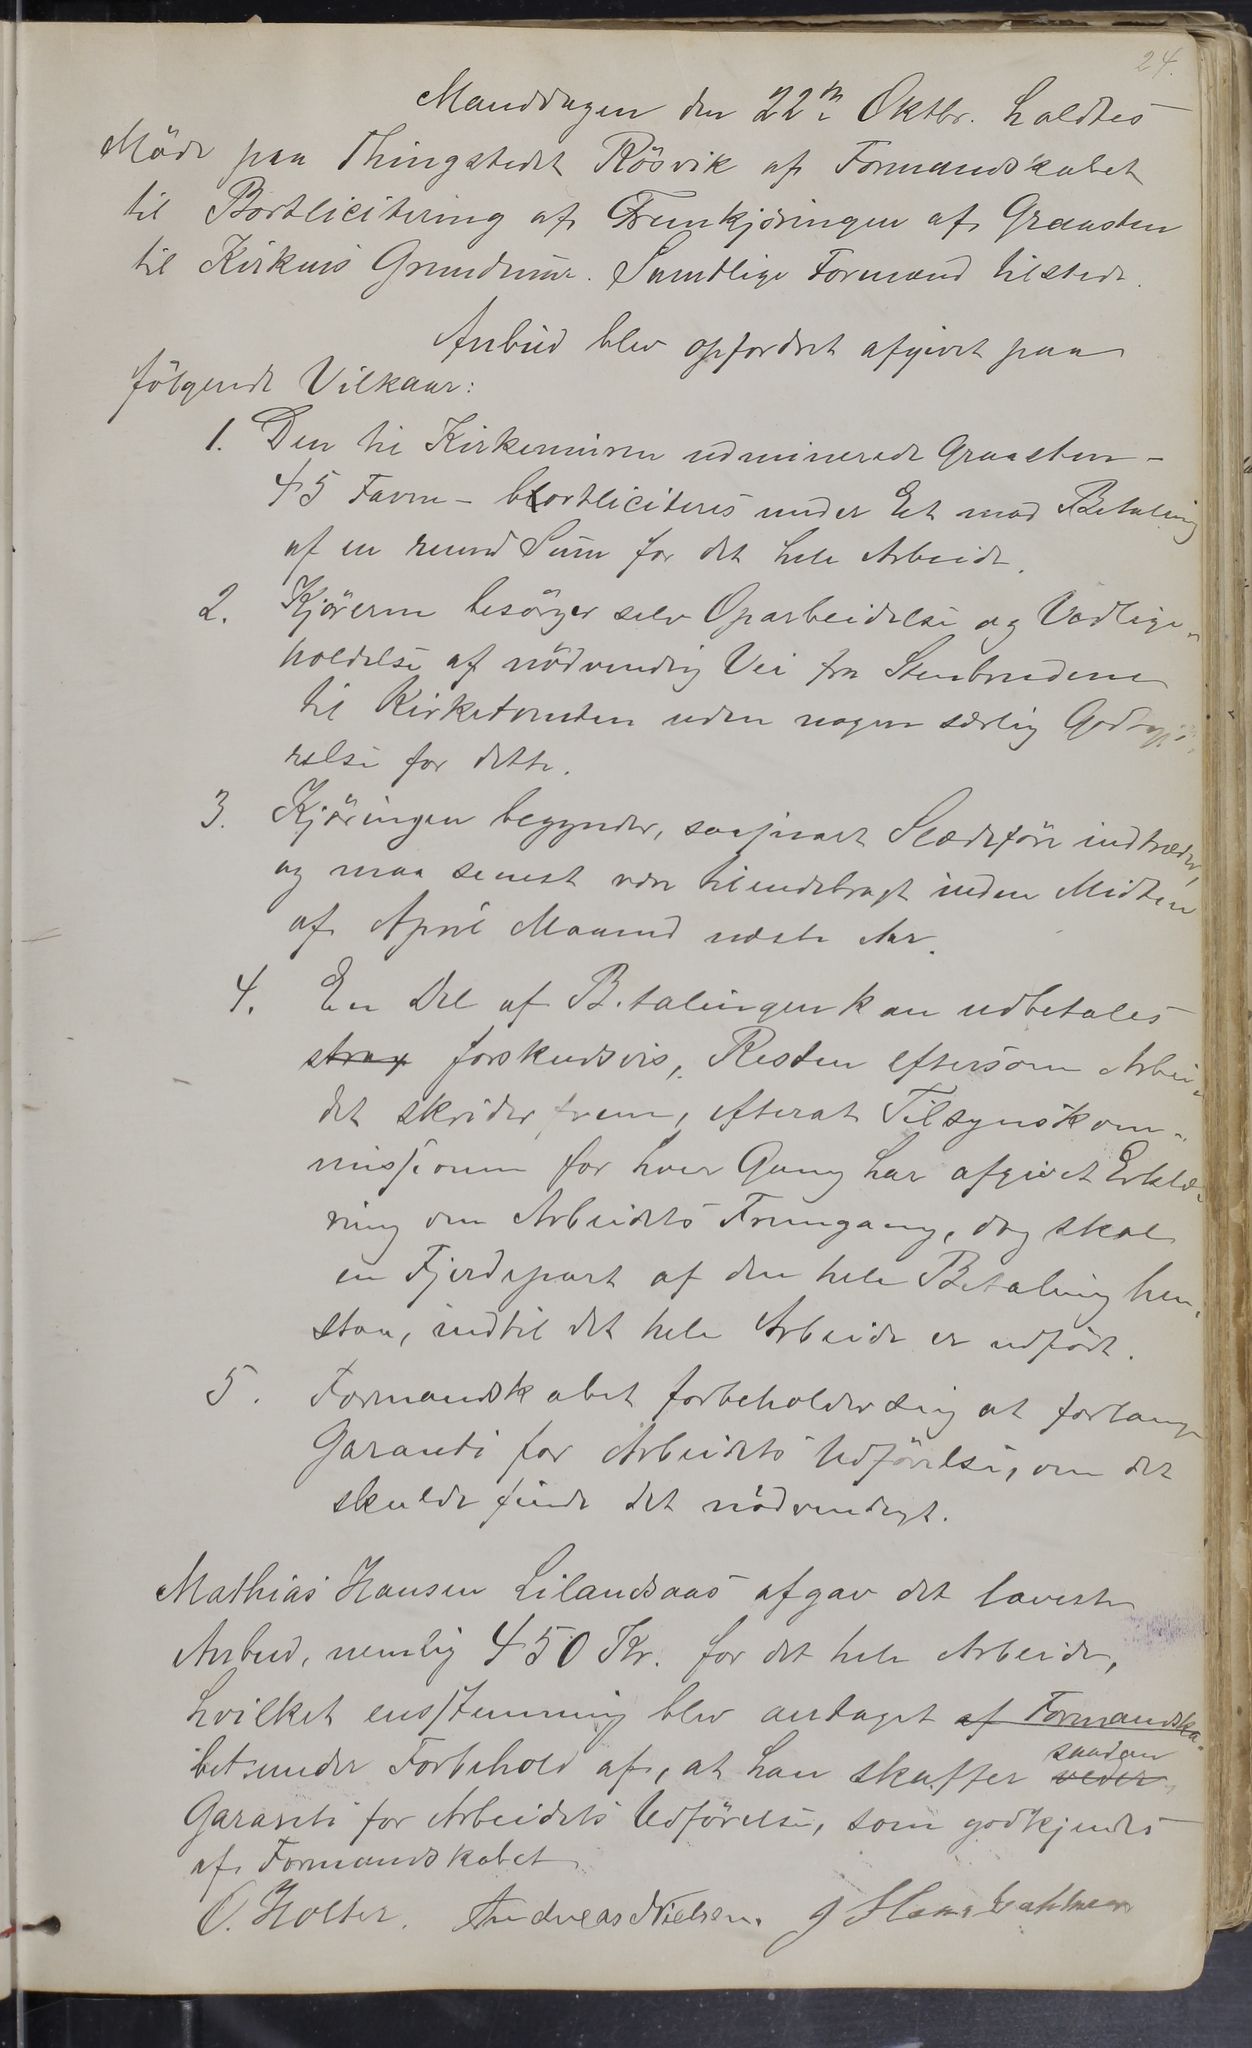 24.
Manddagen den 22de Oktbr. holdtes
Möde paa Thingstedet Rösvik af Formandskabet
til Bortlicitering af Fremkjöringen af Graasten
til Kirkens Grundmur. Samtlige Formænd tilstede.
Anbud blev opfordret afgivet paa
følgende Vilkaar:
1. Den til Kirkemuren udminerede Graasten -
45 Favne - bortliciteres under Et mod Betaling
af en rund Sum for det hele Arbeide.
2. Kjöreren besörger selv Oparbeidelse og Vedlige-
holdelse af nödvendig Vei fra Stenbruddene
til Kirketomten uden nogen særlig Godtgjö-
relse for dette.
3. Kjöringen begynder, saasnart Slædeföre indtræder,
og maa senest være tilendebragt inden Midten
af April Maaned næste Aar.
4. En Del af Betalingen kan udbetales
strax forskudsvis, Resten eftersom Arbei-
det skrider frem, efterat Tilsynskom-
missionen for hver Gang har afgivet Erklæ-
ring om Arbeidets Fremgang, dog skal
en Fjerdepart af den hele Betaling hen-
staa, indtil det hele Arbeide er udfört.
5. Formandskabet forbeholder sig at forlange
Garanti for Arbeidets Udförelse, om det
skulde finde det nödvendigt.
Mathias Hansen Lilandsaas afgav det laveste
Anbud, nemlig 450 Kr. for det hele Arbeide,
hvilket enstemmig blev antaget af Formandska-
bet under Forbehold af, at han skaffer veder saadan
Garanti for Arbeidets Udförelse, som godkjendes
af Formandskabet
O. Holter. Andreas Nielsen.